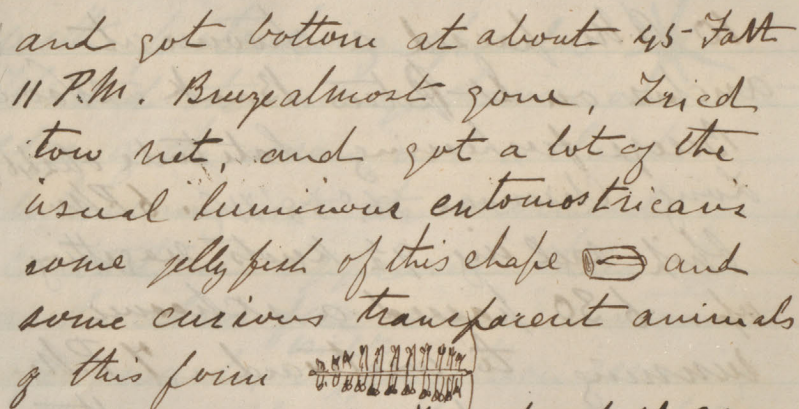 and got bottom at about 45 Fath
11 P.M. Breeze almost gone, Tried
tow net, and got a lot of the
usual luminous entomostricans
some jelly fish of this shape and
some curious transparent animals
of this form